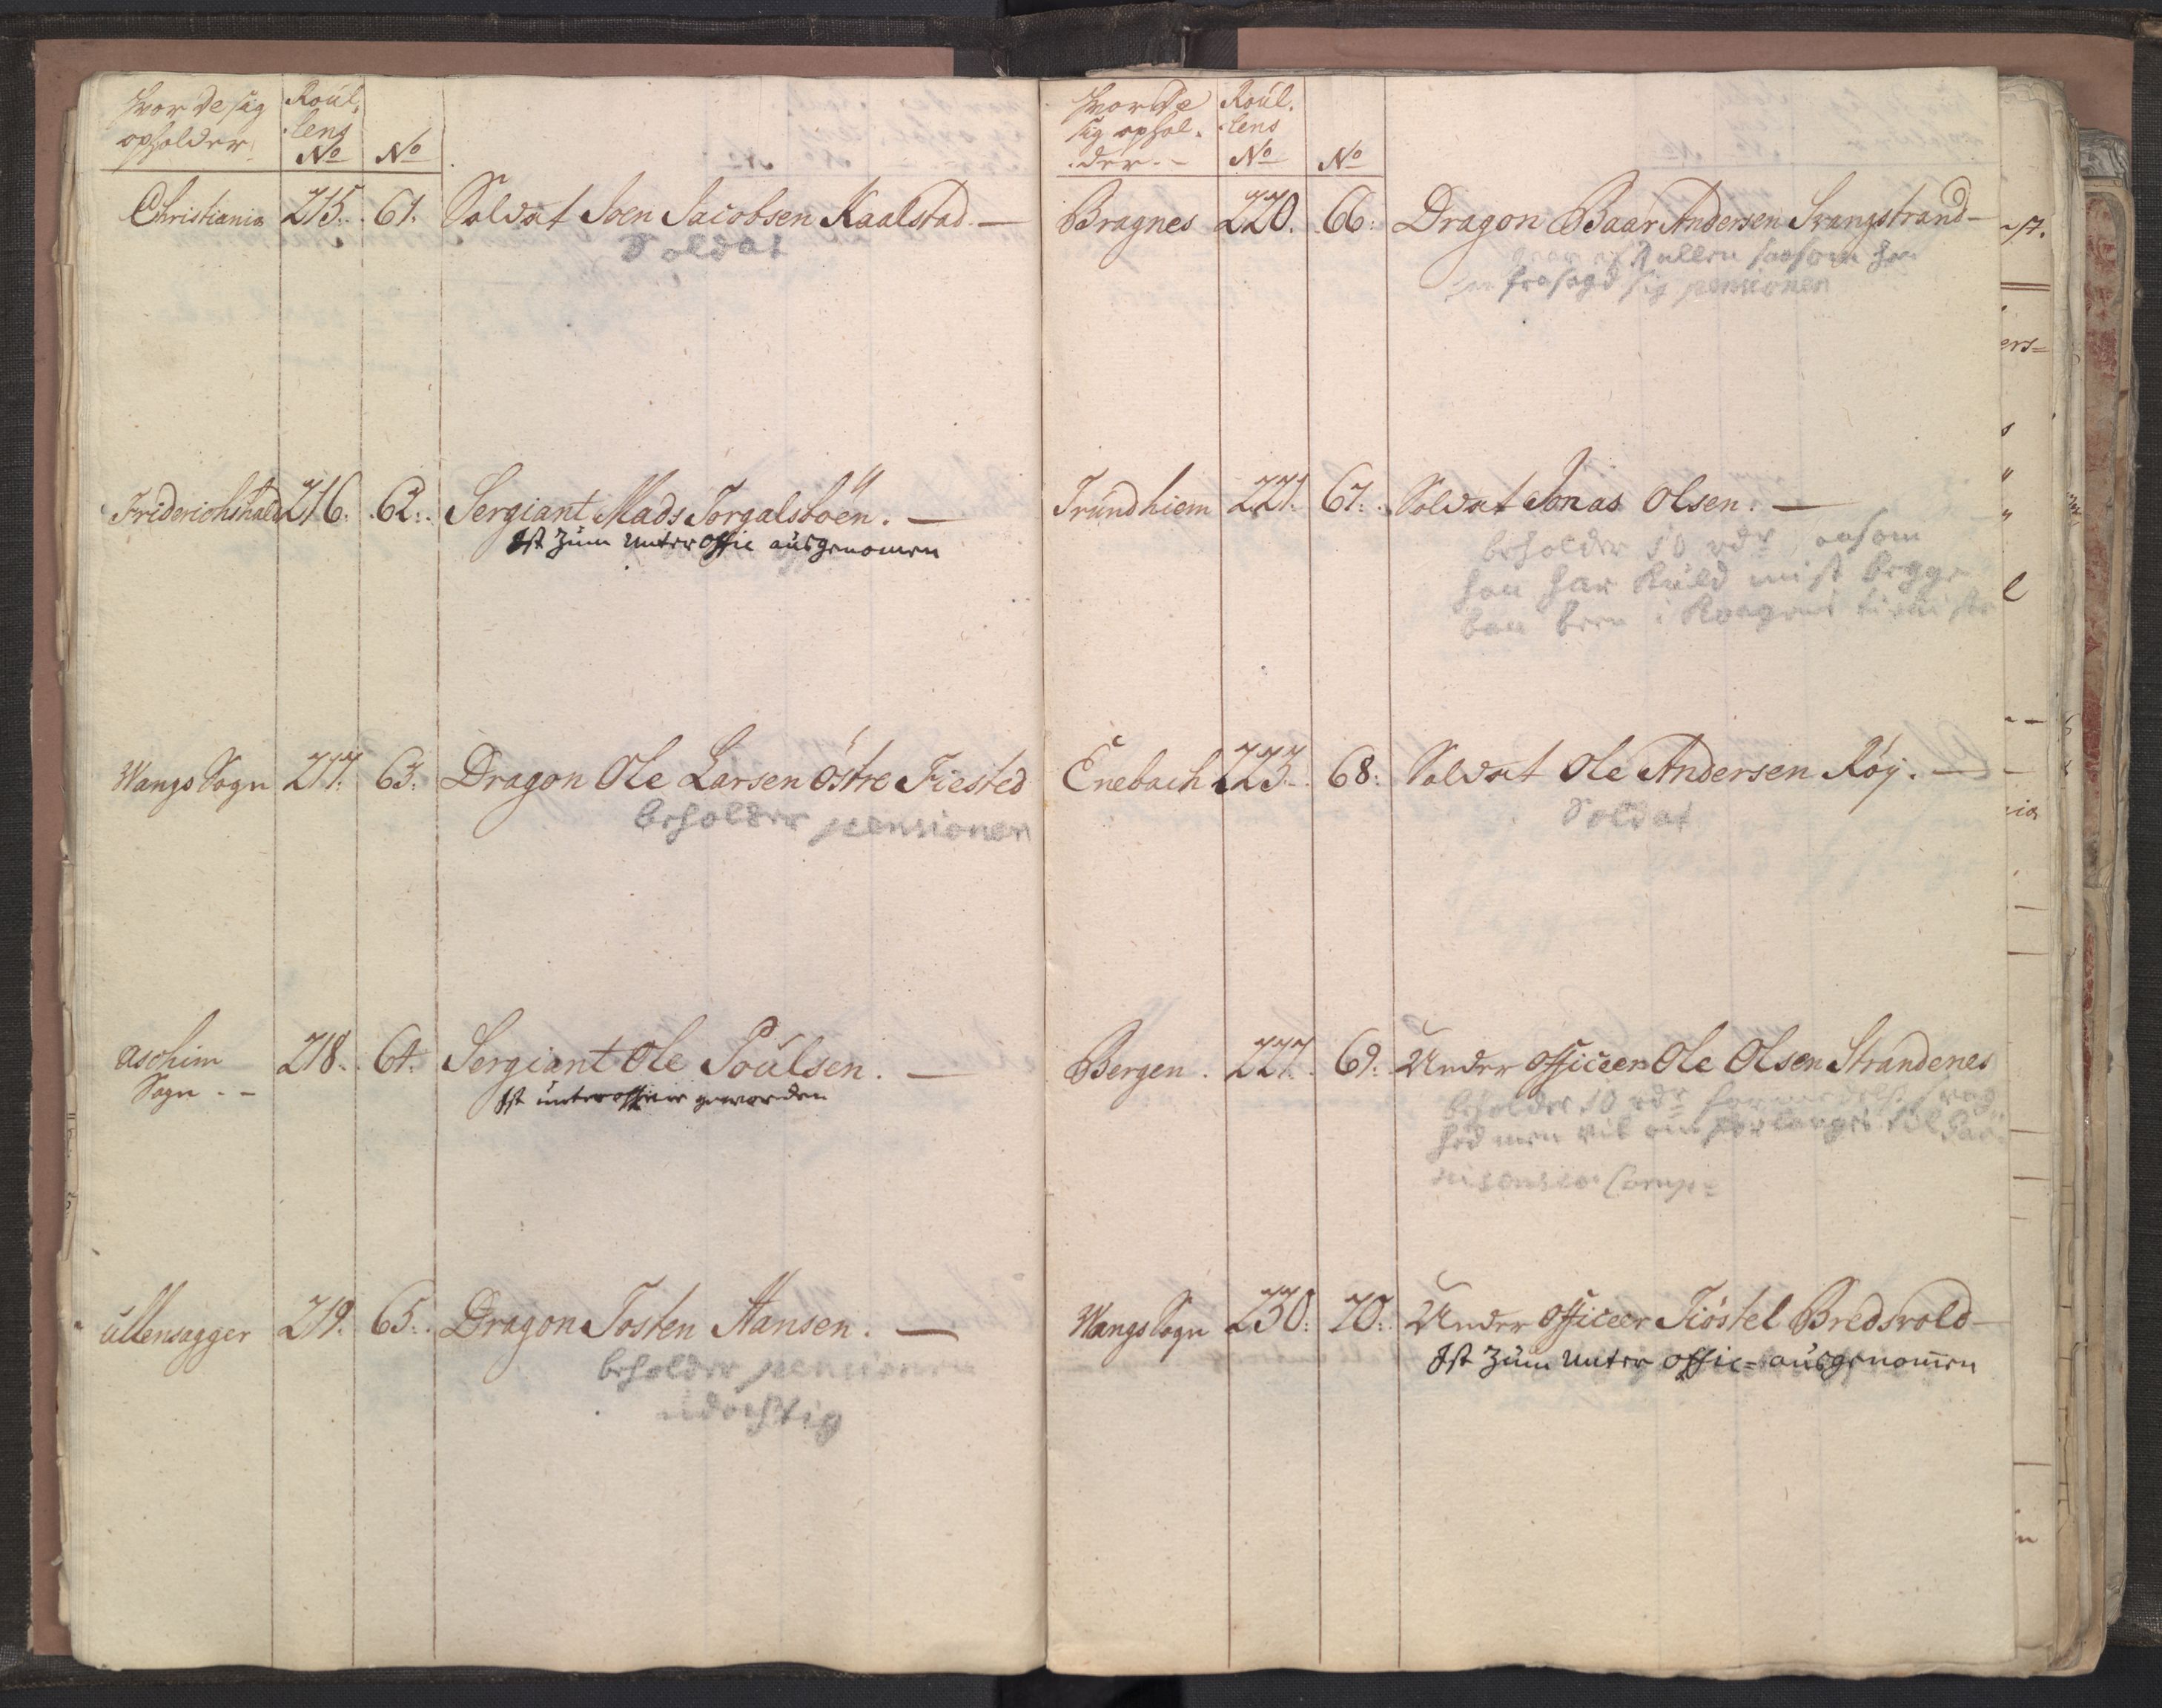 Hvor de sig Roul,
opholder. lens
No No
Christiania 215. 61. Soldat Joen Jacobsen Kaalstad. —
Soldat
Friderichshald 216. 62. Sergiant Mads Torgalsböen. —
Ist zum Unter Offic ausgenomen
Wangs Sogn 217. 63. Dragon Ole Larsen östre Fiested
beholder pensionen
Aschim 218. 64. Sergiant Ole Poulsen. —
Sogn. - Ist unterofficier geworden
Ullensagger 219. 65. Dragon Tosten Hansen. —
beholder pensionen
udochtig
Hvor de Roul.
sig ophol- lens
der. - No No
Bragnes 220. 66: Dragon Baar Andersen Svangstrand —
Rullen saasom han
frasagd sig pensionen
Trundhiem 221. 67. Soldat Jonas Olsen. —
beholder 10 rdr
han har Kuld mist begge
been i Kongens
Enebach 223. 68: Soldat Ole Andersen Röÿ. —
Soldat
Bergen. 227. 69. Under officeer Ole Olsen Strandenes
beholder 10 rdr
hed men vil forlanges til Gar
nisons Comp:
Wangs Sogn 230: 70: Under officeer Tiöstel Bredsvold —
Ist zum Unter offic= ausgenomen